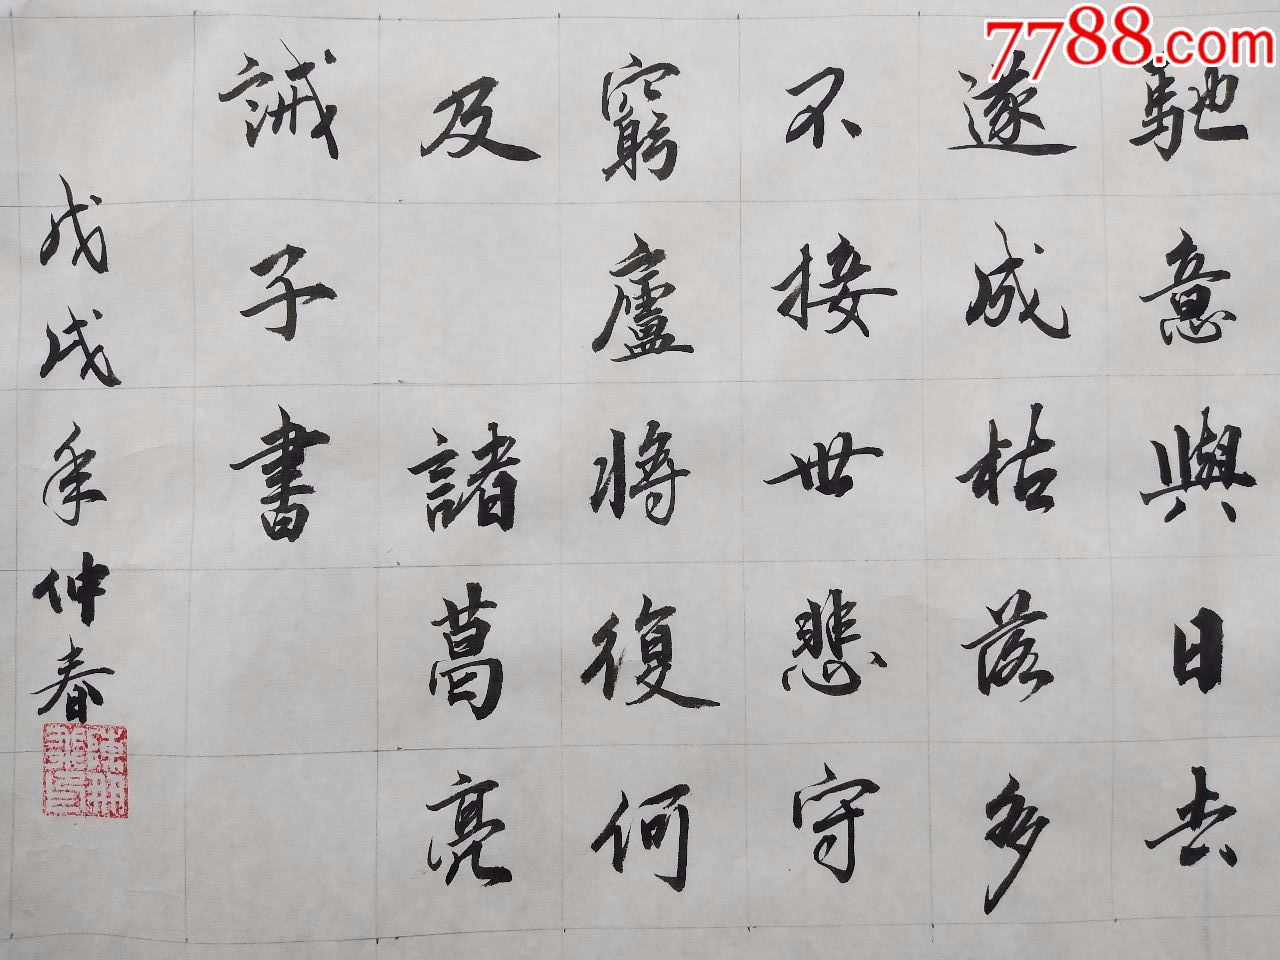 馳意與日去
遂成枯落多
不接世悲守
窮廬將復何
及 諸葛亮
誡子書
戊戌年仲春
7788.com